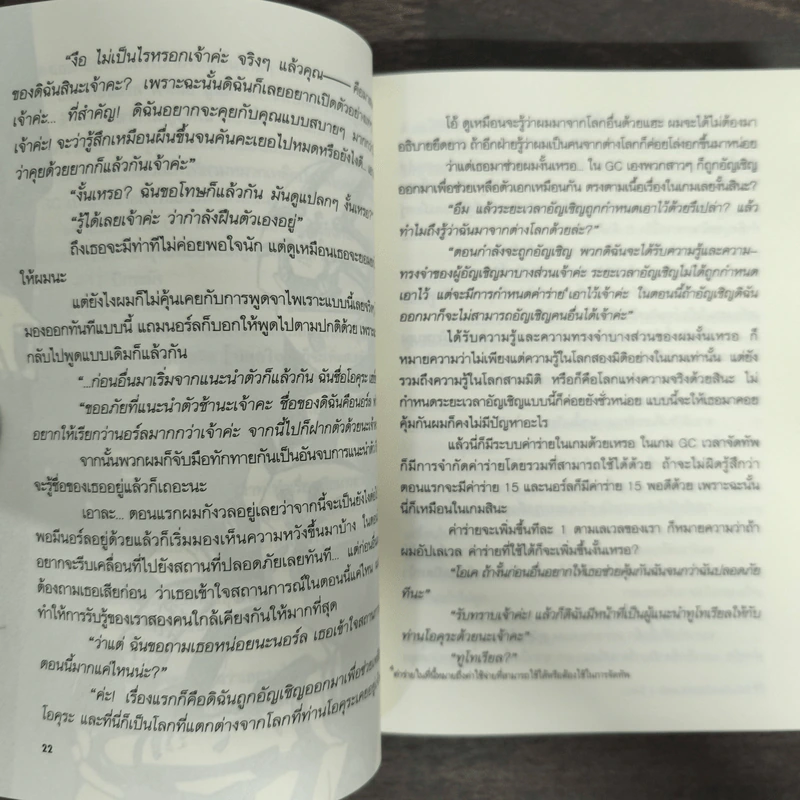 “งือ ไม่เป็นไรหรอกเจ้าค่ะ จริงๆ แล้วคุณ——
ของดิฉันสินะเจ้าคะ? เพราะฉะนั้นดิฉันก็เลยอยากเปิดตัวอย่าง
เจ้าค่ะ... ที่สำคัญ! ดิฉันอยากจะคุยกับคุณแบบสบายๆ
เจ้าค่ะ! จะว่ารู้สึกเหมือนผื่นขึ้นจนคันคะเยอไปหมดหรือยังไงดี...
ว่าคุยด้วยยากก็แล้วกันเจ้าค่ะ”
“งั้นเหรอ? ฉันขอโทษก็แล้วกัน มันดูแปลกๆ งั้นเหรอ?”
“รู้ได้เลยเจ้าค่ะ ว่ากำลังฝืนตัวเองอยู่”
ถึงเธอจะมีท่าทีไม่ค่อยพอใจนัก แต่ดูเหมือนเธอจะยอม
ให้ผมนะ
แต่ยังไงผมก็ไม่คุ้นเคยกับการพูดจาไพเราะแบบนี้เลย
มองออกทันทีแบบนี้ แถมนอร์ลก็บอกให้พูดไปตามปกติด้วย
กลับไปพูดแบบเดิมก็แล้วกัน
“...ก่อนอื่นมาเริ่มจากแนะนำตัวก็แล้วกัน ฉันชื่อโอคุระ
“ขออภัยที่แนะนำตัวช้านะเจ้าคะ ชื่อของดิฉันคือนอร์ล
อยากให้เรียกว่านอร์ลมากกว่าเจ้าค่ะ จากนี้ไปก็ฝากตัวด้วยนะเจ้าคะ
จากนั้นพวกผมก็จับมือทักทายกันเป็นอันจบการแนะนำตัว
จะรู้ชื่อของเธออยู่แล้วก็เถอะนะ
เอาละ... ตอนแรกผมกังวลอยู่เลยว่าจากนี้จะเป็นยังไงต่อไป
พอมีนอร์ลอยู่ด้วยแล้วก็เริ่มมองเห็นความหวังขึ้นมาบ้าง
อยากจะรีบเคลื่อนที่ไปยังสถานที่ปลอดภัยเลยทันที... แต่ก่อนอื่น
ต้องถามเธอเสียก่อน ว่าเธอเข้าใจสถานการณ์ในตอนนี้แค่ไหน
ทำให้การรับรู้ของเราสองคนใกล้เคียงกันให้มากที่สุด
“ว่าแต่ ฉันขอถามเธอหน่อยนะนอร์ล เธอเข้าใจสถาน
ตอนนี้มากแค่ไหนน่ะ?”
“ค่ะ! เรื่องแรกก็คือดิฉันถูกอัญเชิญออกมาเพื่อช่วย
โอคุระ และที่นี่ก็เป็นโลกที่แตกต่างจากโลกที่ท่านโอคุระเคย
22
โอ้ ดูเหมือนจะรู้ว่าผมมาจากโลกอื่นด้วยแฮะ ผมจะได้ไม่ต้องมา
อธิบายยืดยาว ถ้าอีกฝ่ายรู้ว่าผมเป็นคนจากต่างโลกก็ค่อยโล่งอกขึ้นมาหน่อย
ว่าแต่เธอมาช่วยผมงั้นเหรอ... ใน GC เองพวกสาวๆ ก็ถูกอัญเชิญ
ออกมาเพื่อช่วยเหลือตัวเอกเหมือนกัน ตรงตามเนื้อเรื่องในเกมเลยงั้นสินะ?
“อืม แล้วระยะเวลาอัญเชิญถูกกำหนดเอาไว้ด้วยรึเปล่า? แล้ว
ทำไมถึงรู้ว่าฉันมาจากต่างโลกด้วยล่ะ?”
“ตอนกำลังจะถูกอัญเชิญ พวกดิฉันจะได้รับความรู้และความ–
ทรงจำของผู้อัญเชิญมาบางส่วนเจ้าค่ะ ระยะเวลาอัญเชิญไม่ได้ถูกกำหนด
เอาไว้ แต่จะมีการกำหนดค่าร่าย*เอาไว้เจ้าค่ะ ในตอนนี้ถ้าอัญเชิญดิฉัน
ออกมาก็จะไม่สามารถอัญเชิญคนอื่นได้เจ้าค่ะ”
ได้รับความรู้และความทรงจำบางส่วนของผมงั้นเหรอ ก็
หมายความว่าไม่เพียงแต่ความรู้ในโลกสองมิติอย่างในเกมเท่านั้น แต่ยัง
รวมถึงความรู้ในโลกสามมิติ หรือก็คือโลกแห่งความจริงด้วยสินะ ไม่
กำหนดระยะเวลาอัญเชิญแบบนี้ก็ค่อยยังชั่วหน่อย แบบนี้จะให้เธอมาคอย
คุ้มกันผมก็คงไม่มีปัญหาอะไร
แล้วนี่ก็มีระบบค่าร่ายในเกมด้วยเหรอ ในเกม GC เวลาจัดทัพ
ก็มีการจำกัดค่าร่ายโดยรวมที่สามารถใช้ได้ด้วย ถ้าจะไม่ผิดรู้สึกว่า
ตอนแรกจะมีค่าร่าย 15 และนอร์ลก็มีค่าร่าย 15 พอดีด้วย เพราะฉะนั้น
นี่ก็เหมือนในเกมสินะ
ค่าร่ายจะเพิ่มขึ้นทีละ 1 ตามเลเวลของเรา ก็หมายความว่าถ้า
ผมอัปเลเวล ค่าร่ายที่ใช้ได้ก็จะเพิ่มขึ้นงั้นเหรอ?
“โอเค ถ้างั้นก่อนอื่นอยากให้เธอช่วยคุ้มกันฉันจนกว่าฉันปลอดภัย
ทีนะ”
“รับทราบเจ้าค่ะ! แล้วก็ดิฉันมีหน้าที่เป็นผู้แนะนำทูโทเรียลให้กับ
ท่านโอคุระด้วยนะเจ้าคะ”
“ทูโทเรียล?”
*ค่าร่ายในที่นี้หมายถึงค่าใช้จ่ายที่สามารถใช้ได้หรือต้องใช้ในการจัดทัพ